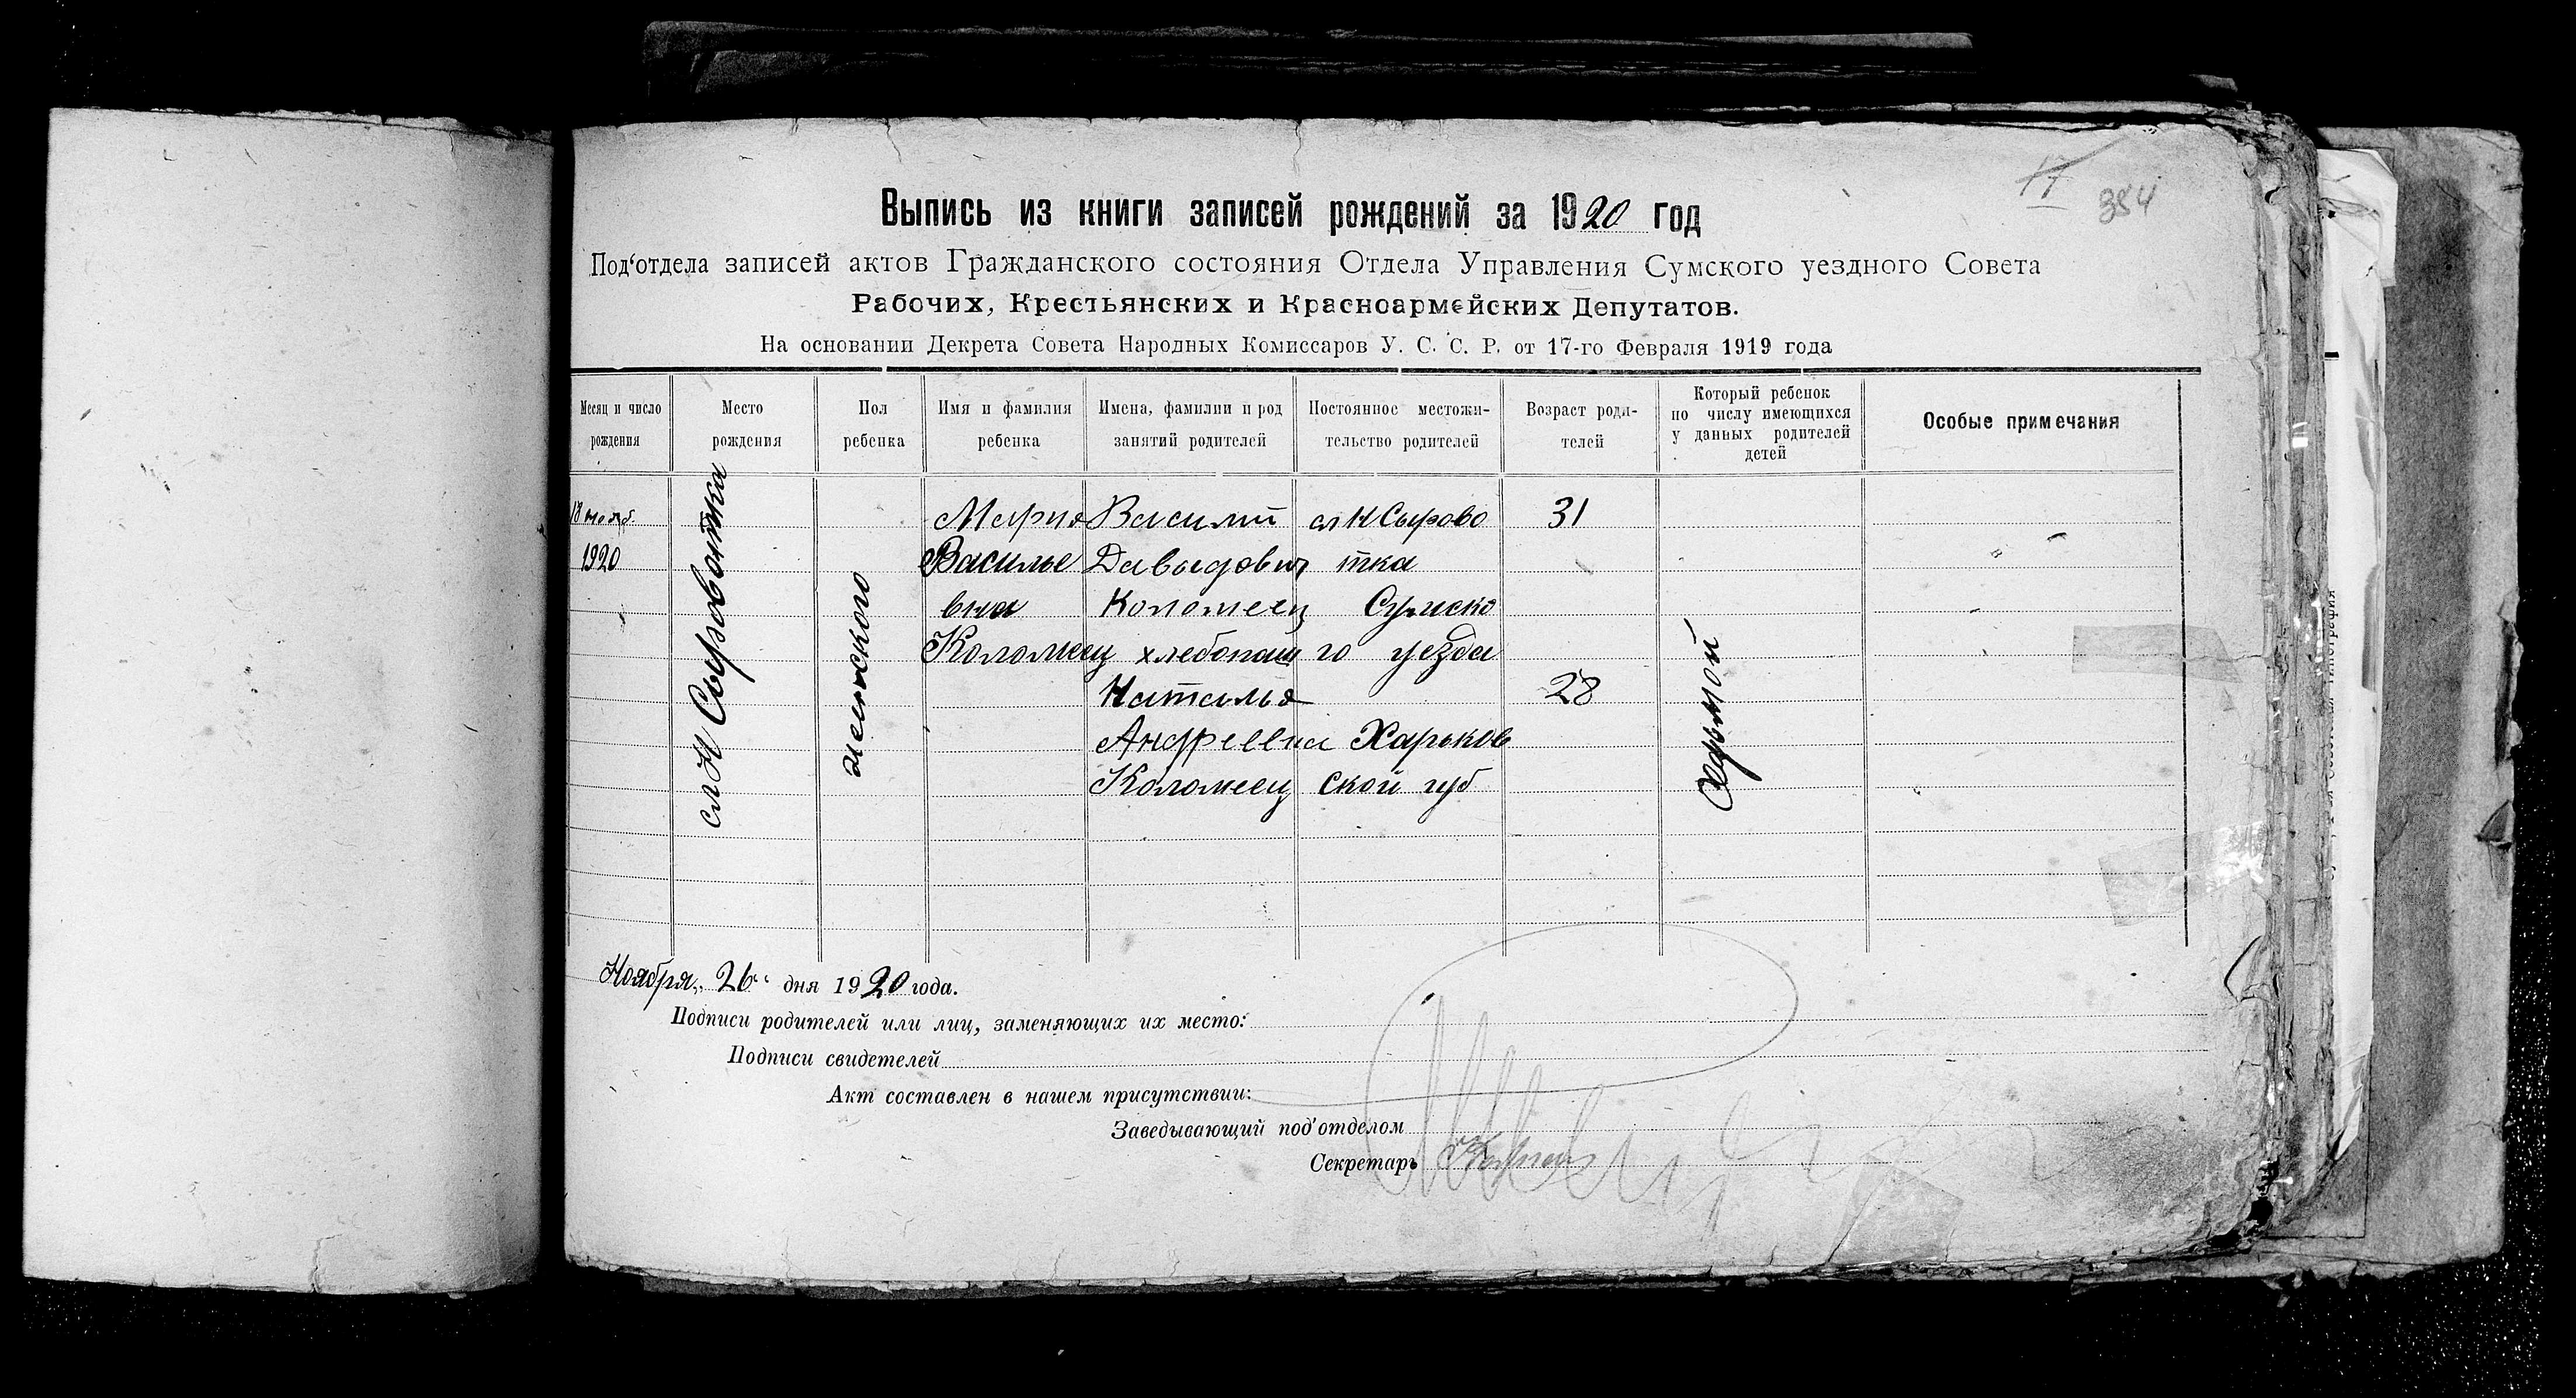 17
384
Выпись из книги записей рождений за 1920 год
Под'отдела записей актов Гражданского состояния Отдела Управления Сумского уездного Совета
Рабочих, Крестьянских и Красноармейских Депутатов.
На основании Декрета Совета Народных Комиссаров У. С. С. Р. от 17-го Февраля 1919 года
Месяц и число рождения
Место рождения
Пол ребенка
Имя и фамилия ребенка
Имена, фамилии и род занятий родителей
Постоянное местожительство родителей
Возраст родителей
Который ребенок по числу имеющихся у данных родителей детей
Особые примечания
18 нояб.
1920
сл Н Сыроватка
женского
Мария
Василье
вна
Коломеец
Василий
Давыдович
Коломеец
хлебопаш
Наталья
Андреевна
Коломеец
сл Н Сырова
тка
Сумско
го уезда
Харьков
ской губ
31
28
Ноября „26“ дня 1920 года.
Подписи родителей или лиц, заменяющих их место:
Подписи свидетелей
Акт составлен в нашем присутствии:
Заведывающий под'отделом
Секретарь